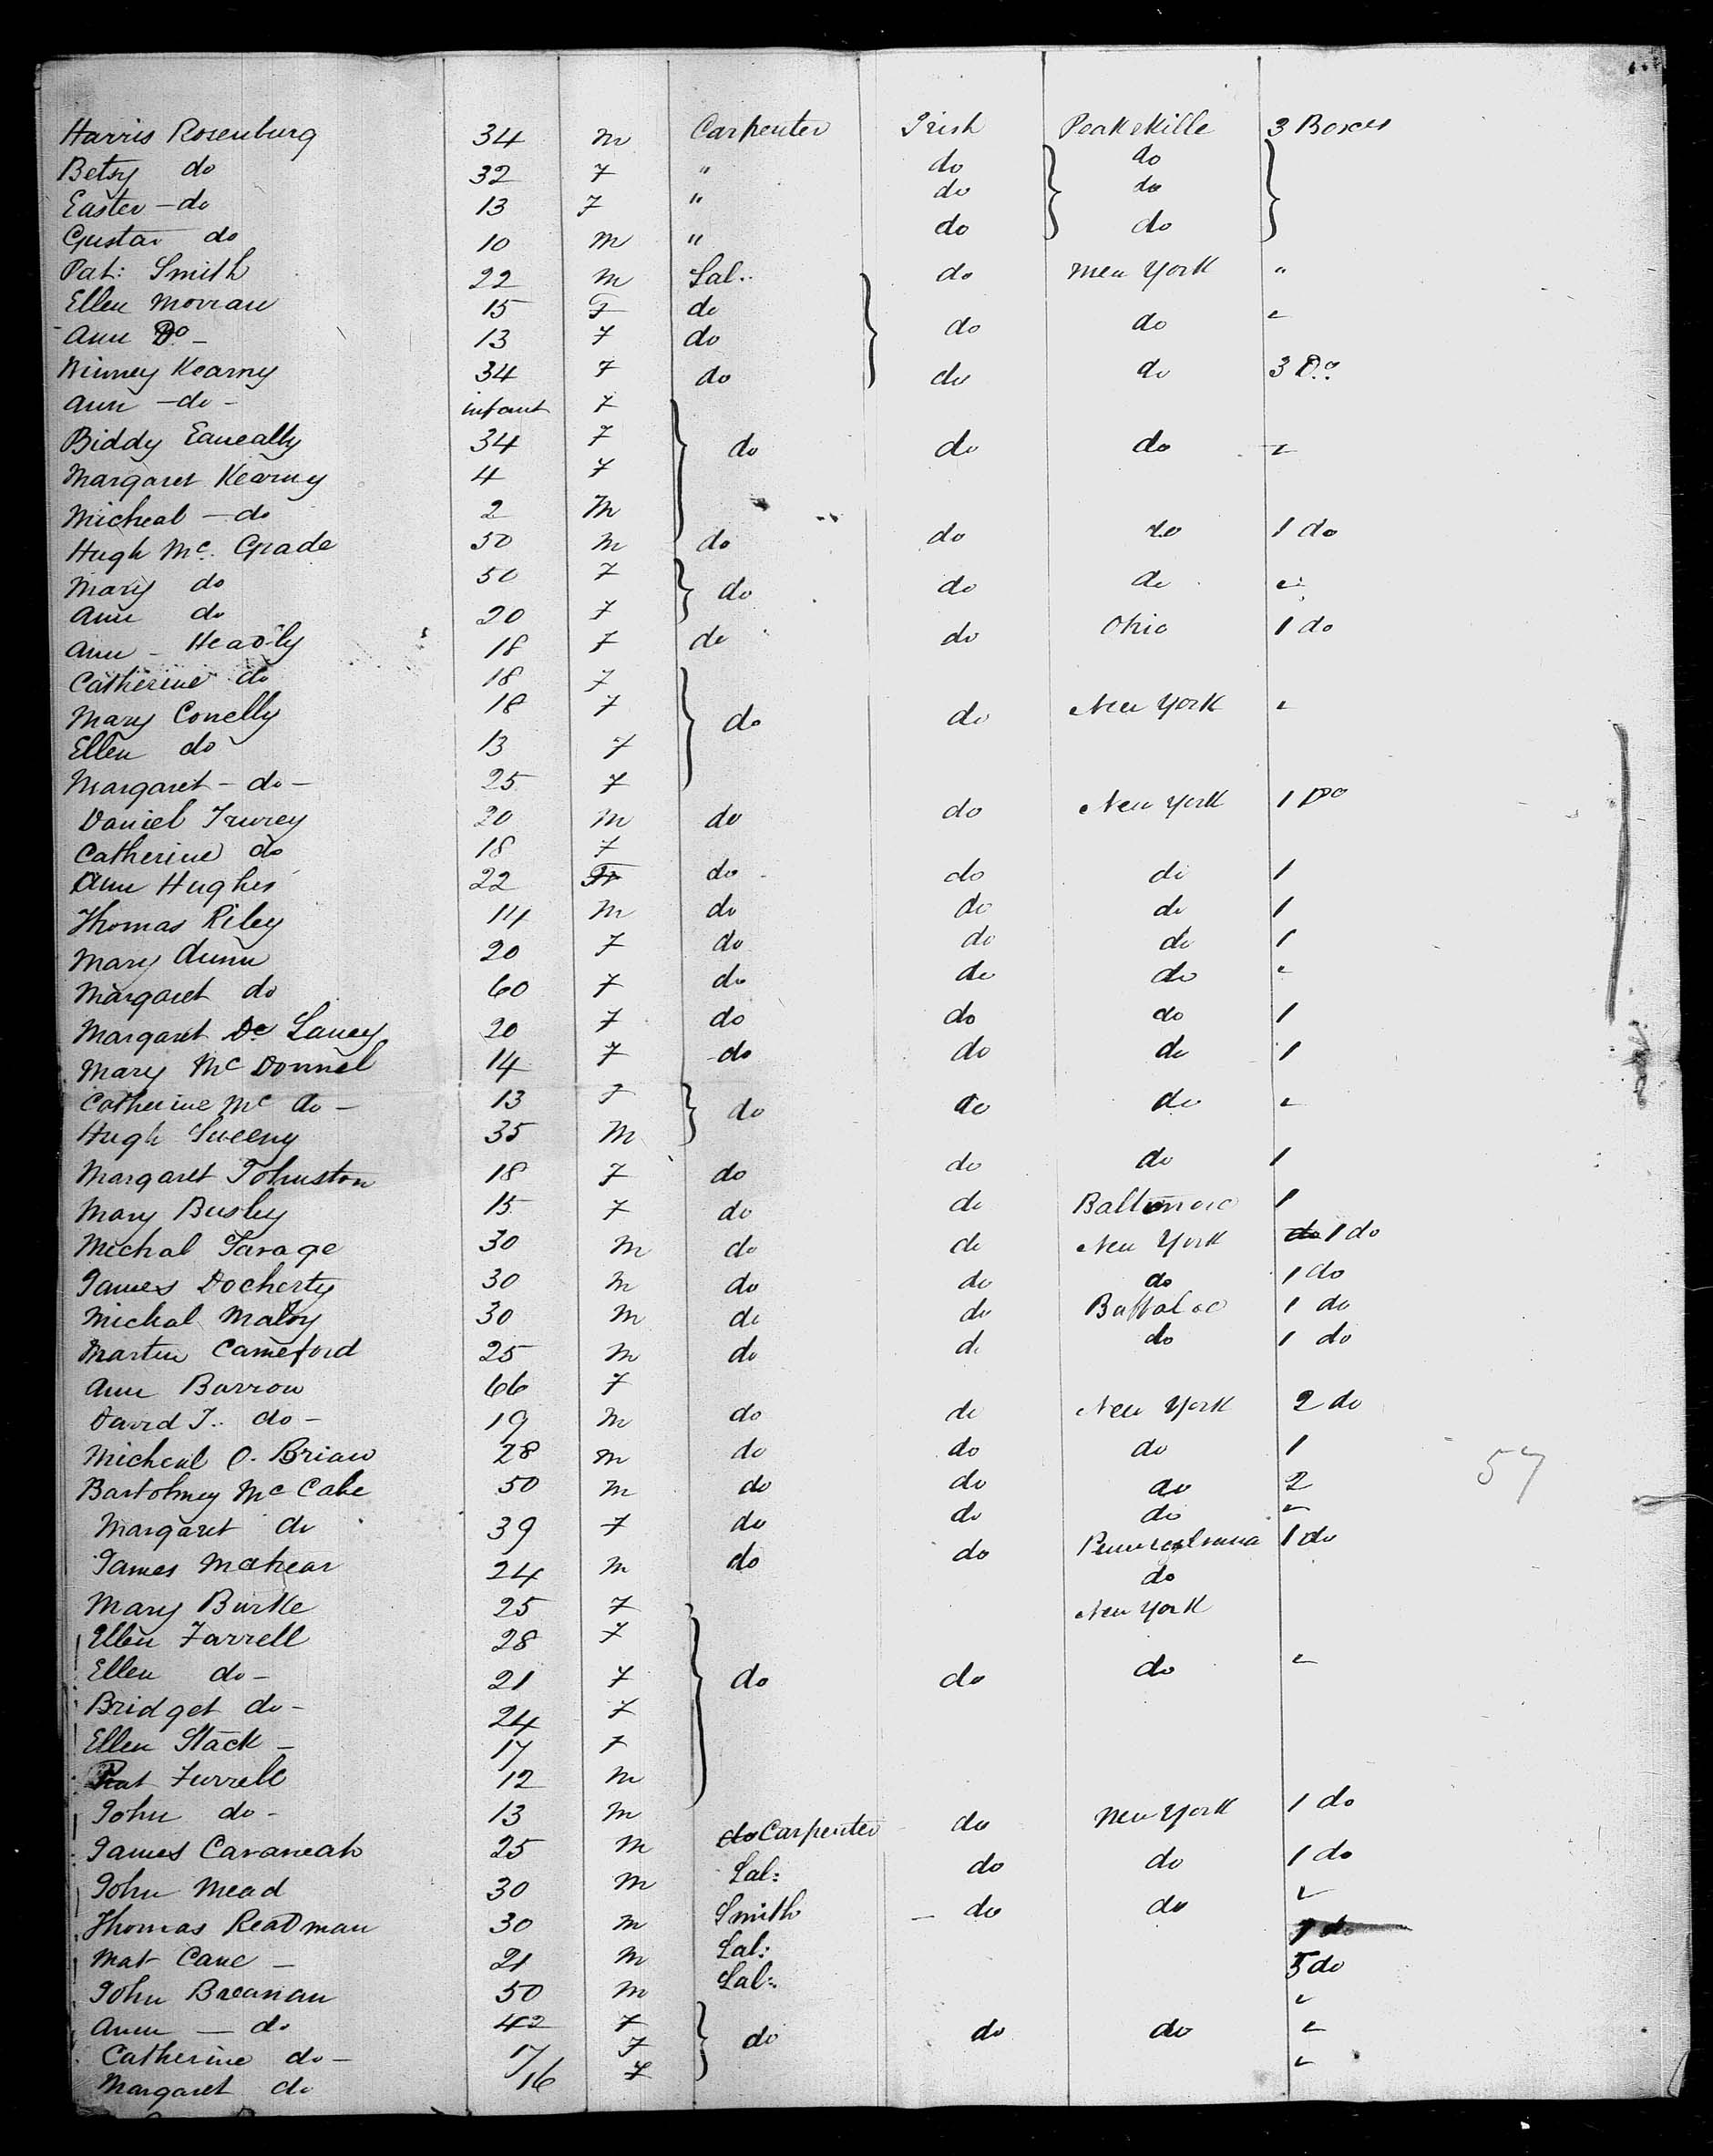 Harris Rosenburg 34 m Carpenter Irish Peakskille 3 Boxes
Betsy do 32 F " do do
Easter - do 13 F " do do
Gustav do 10 m " do do
Pat: Smith 22 m Lab.. do New York "
Ellen Morran 15 F do
Ann Do - 13 F do do do "
Winney Kearny 34 F do do do 3 Do
Ann - do - infant F
Biddy 34 F do do do "
Margaret Kearny 4 F
Micheal - do 2 M
Hugh Mc. Grade 50 m do do do 1 do
Mary do 50 F do do do "
Ann do 20 F
Ann - Headly 18 F do do Ohio 1 do
Catherine do 18 F
Mary Conelly 18 F do do New York "
Ellen do 13 F
Margaret - do - 25 F
Daniel 20 m do do New York 1 Do
Catherine do 18 F
Ann Hughes 22 F do do do 1
Thomas Riley 14 m do do do 1
Mary Dunn 20 F do do do 1
Margaret do 60 F do do do "
Margaret De Lancy 20 F do do do 1
Mary Mc Donnel 14 F do do do 1
Catherine Mc do - 13 F do do do "
Hugh Sweeny 35 M
Margaret Johnston 18 F do do do 1
Mary Busley 15 F do do Baltimore 1
Michal Savage 30 m do do New York do 1 do
James Docherty 30 m do do do 1 do
Michal Maloy 30 m do do Buffaloo 1 do
Martin Cameford 25 m do do do 1 do
Ann Barrow 66 F
David J. do - 19 m do do New York 2 do
Micheal O. Brian 28 m do do do 1
57
Bartolmey Mc Cabe 50 m do do do 2
Margaret do 39 F do do do "
James Mahear 24 m do do Pennsylvania 1 do
do
Mary Burke 25 F New York
Ellen Farrell 28 F
Ellen do - 21 F do do do "
Bridget do - 24 F
Ellen Stack - 17 F
Pat Furrell 12 m
John do - 13 m
James Cavaneah 25 m do Carpenter do New York 1 do
John Mead 30 m Lab: do do 1 do
Thomas Readman 30 m Smith - do do "
Mat Cane - 21 m Lab: 1 do
John Breanan 50 m Lab: 5 do
Ann - do 42 F "
Catherine do - 17 F do do do "
Margaret do 16 F "